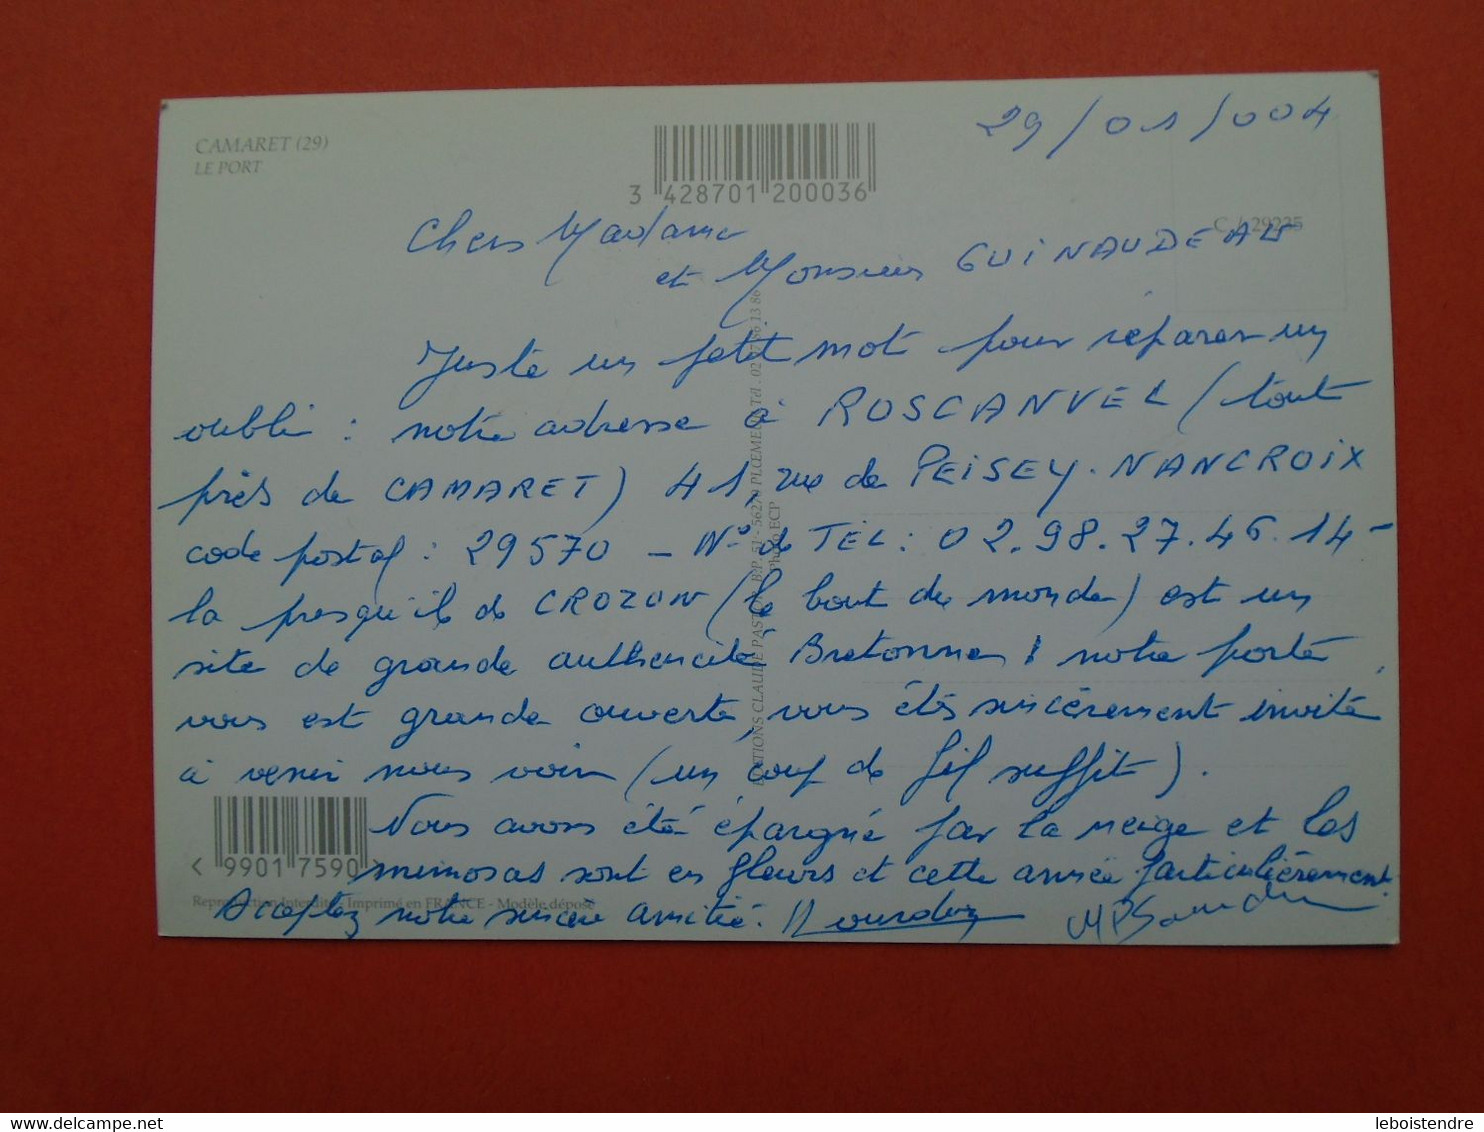 CAMARET (29)
LE PORT
29/01/004
3 428701 200036
C / 29225
Chers Madame
et Monsieur GUINAUDEAU
Juste un petit mot pour réparer un
oubli : notre adresse à ROSCANVEL (tout
près de CAMARET) 41, rue de PEISEY-NANCROIX
code postal : 29570 - N° de TEL : 02.98.27.46.14-
la presqu'ile de CROZON (le bout du monde) est un
site de grande authencité Bretonne ! notre porte
vous est grande ouverte, vous étes sincérement invité
à venir nous voir (un coup de fil suffit).
Nous avons été épargné par la neige et les
mimosas sont en fleurs et cette année particulièrement.
Acceptez notre sincère amitié.
EDITIONS CLAUDE PASTOR - B.P. 51 - 56270 PLŒMEUR Tél. 02 56 13 86
Photo ECP
< 9901 7590 >
Reproduction Interdite - Imprimé en FRANCE - Modèle déposé
leboistendre